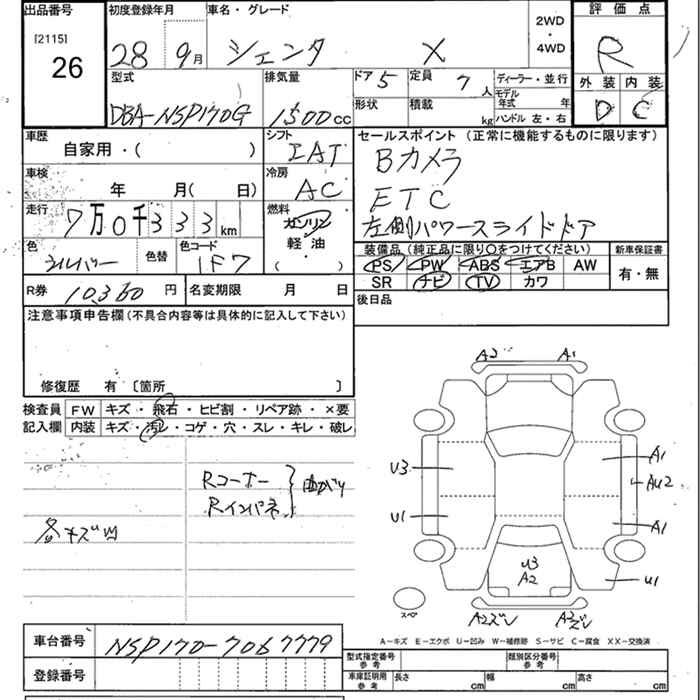 出品番号 初度登録年月 車名・グレード 2WD・4WD 評価点
[2115]
26 28 9月 シエンタ X R
型式 排気量 ドア 5 定員 7人 ディーラー・並行 外装 内装
DBA-NSP170G 1500cc 形状 積載 kg モデル年式 年 D C
ハンドル 左・右
車歴 シフト セールスポイント (正常に機能するものに限ります)
自家用・( ) IAT Bカメラ
車検 冷房 ETC
年 月( 日) AC 左側パワースライドドア
走行 燃料
7万0千333km ガソリン
軽油
( )
色 色替 色コード 装備品(純正品に限り○をつけてください) 新車保証書
シルバー 1F7 PS PW ABS エアB AW 有・無
SR ナビ TV カワ
R券 10360円 名変期限 月 日 後日品
注意事項申告欄(不具合内容等は具体的に記入して下さい)
修復歴 有 〔箇所 〕
検査員 FW キズ・飛石・ヒビ割・リペア跡・×要
記入欄 内装 キズ・汚レ・コゲ・穴・スレ・キレ・破レ
Rコーナー
Rインパネ 曲がり
各キズ凹
A2 A1
U3 A1
AU2
U1 A1
U3
A2 U1
スペ A2ズレ A2ズレ
A-キズ E-エクボ U-凹み W-補修跡 S-サビ C-腐食 XX-交換済
車台番号 NSP170-7067779
登録番号
型式指定番号 参考 類別区分番号 参考
車庫証明用 参考 長さ cm 幅 cm 高さ cm